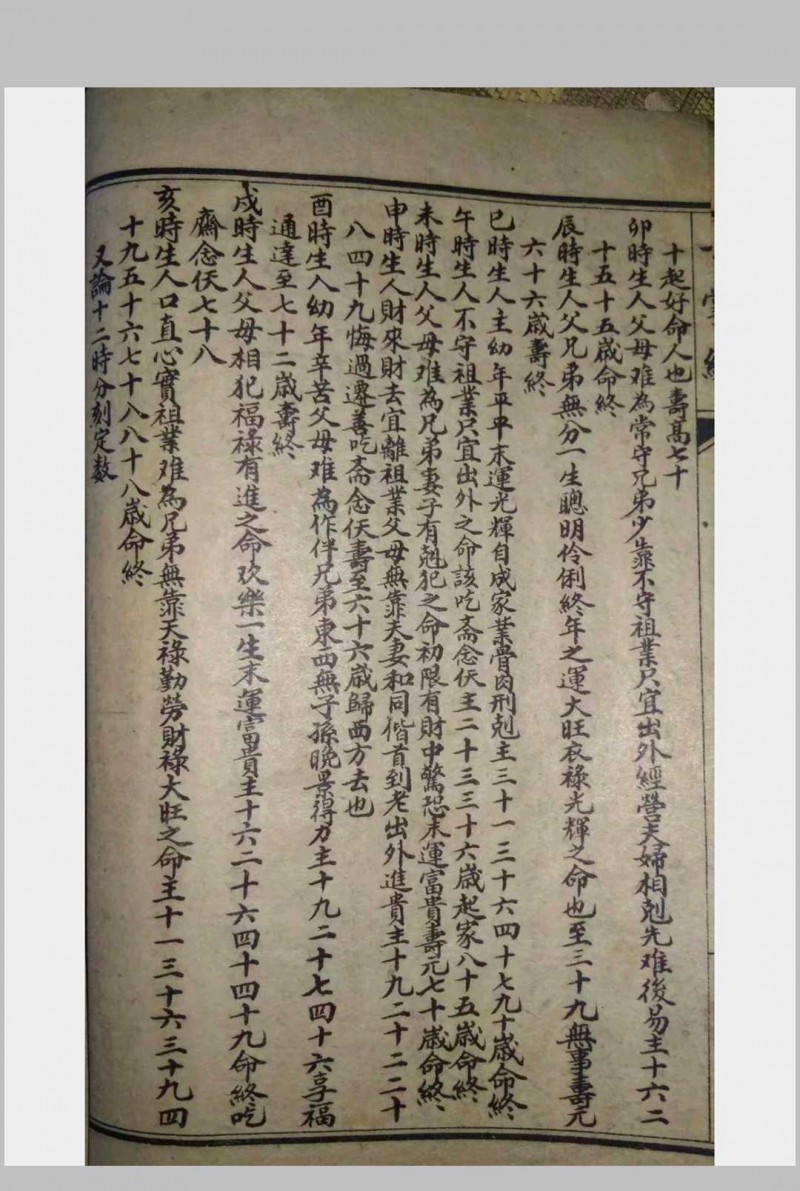 十起好命人也壽高七十
卯時生人父母难為常守兄弟少靠不守祖業只宜出外經營夫婦相剋先难後易主十六二
十五十五歲命終
辰時生人父兄弟無分一生聰明伶俐終年之運大旺衣祿光輝之命也至三十九無事壽元
六十六歲壽終
巳時生人主幼年平平末運光輝自成家業骨肉刑剋主三十一三十六四十七九十歲命終
午時生人不守祖業只宜出外之命該吃斋念仸主二十三三十六歲起家八十五歲命終
未時生人父母难為兄弟妻子有剋犯之命初限有財中驚恐末運富貴壽元七十歲命終
申時生人財來財去宜離祖業父母無靠夫妻和同偕首到老出外進貴主十九二十二二十
八四十九悔過遷善吃斋念仸壽至六十六歲歸西方去也
酉時生人幼年辛苦父母难為作伴兄弟東西無子孫晚景得力主十九二十七四十六享福
通達至七十二歲壽終
戌時生人父母相犯福祿有進之命欢樂一生末運富貴主十六二十六四十四十九命終吃
齋念仸七十八
亥時生人口直心實祖業难為兄弟無靠天祿勤勞財祿大旺之命主十一三十六三十九四
十九五十六七十八八十八歲命終
又論十二時分刻定数